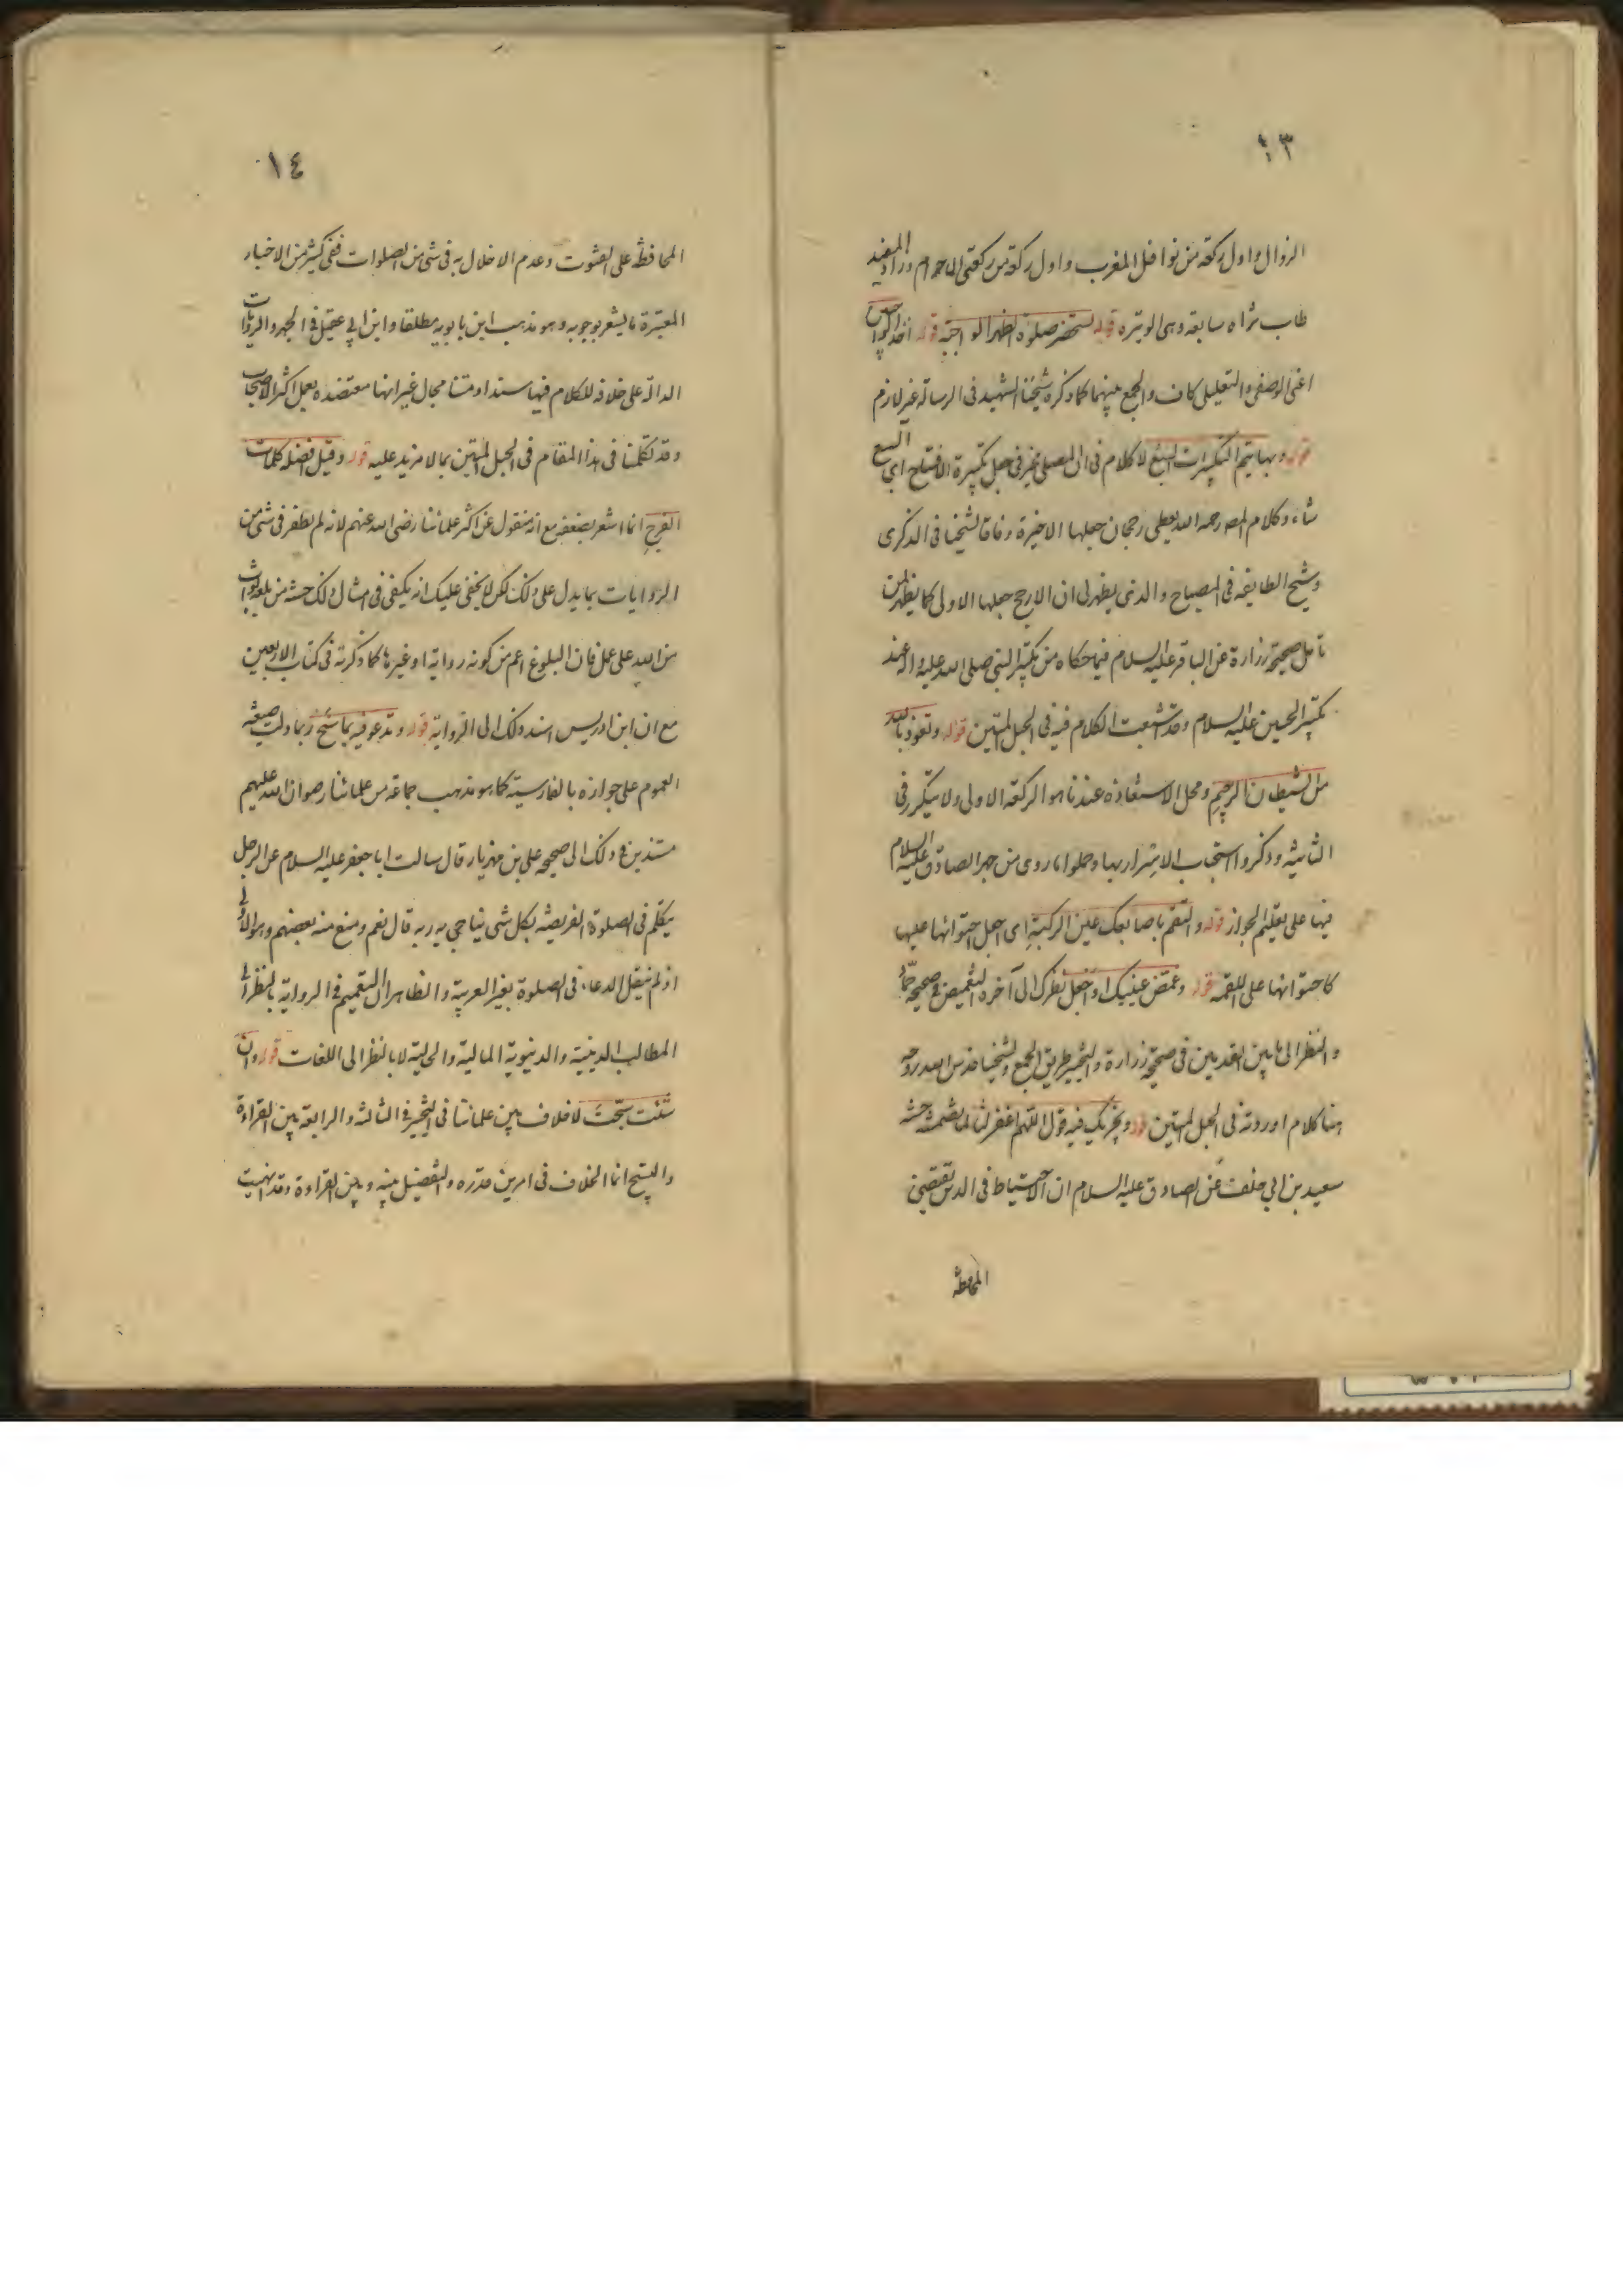 ١٣
الزوال واول ركعة من نوافل المغرب واول ركعة من ركعتى الاحرام وزاد المفيد
طاب ثراه سابعة وهى الوتيره قوله تستحضر صلوة الظهر الواجبة قوله احد الوجوب
اعنى الوصفى والتعليلى كاف والجمع بينهما كما ذكره شيخنا الشهيد فى الرسالة غير لازم
قوله وبها يتم التكبيرات السبع لا كلام فى ان المصلى مخير فى جعل تكبيرة الافتتاح اى السبع
شاء وكلام المصر رحمه الله يعطى رجحان جعلها الاخيرة وفاقا لشيخنا فى الذكرى
وشيخ الطايفه فى المصباح والذى يظهر لى ان الارجح جعلها الاولى كما يظهر لمن
تامل صحيحة زرارة عن الباقر عليه السلام فيما حكاه من تكبير النبى صلى الله عليه واله عند
تكبير الحسين عليه السلام وقد اشبعت الكلام فيه فى الحبل المتين قوله وتعوذ بالله
من الشيطان الرجيم ومحل الاستعاذه عندنا هو الركعة الاولى ولا يتكرر فى
الثانية وذكروا استحباب الاسرار بها وحملوا ما روى من جهر الصادق عليه السلام
فيها على تعليم الجواز قوله والتقم باصابعك عين الركبة اى اجعل احتوائها عليها
كاحتوائها على اللقمة قوله وغمض عينيك او اجعل نظرك الى آخره التغميض فى صحيحة حماد
والنظر الى ما بين القدمين فى صحيحة زرارة والتخيير طريق الجمع ولشيخنا قدس الله روحه
هنا كلام اوردته فى الحبل المتين قوله ويجزيك فيه قول اللهم اغفر لنا لما تضمنته حسنة
سعيد بن ابى خلف عن الصادق عليه السلام ان الاحتياط فى الدين تقتضى
المحافظة
١٤
المحافظة على القنوت وعدم الاخلال به فى شئ من الصلوات ففى كثير من الاخبار
المعتبرة ما يشعر بوجوبه وهو مذهب ابن بابويه مطلقا وابن ابى عقيل فى الجهر والروايات
الدالة على خلافه للكلام فيها سندا ومتنا مجال غير انها معتضده بعمل اكثر الاصحاب
وقد تكلمنا فى هذا المقام فى الحبل المتين بما لا مزيد عليه قوله وقيل افضله كلمات
الفرج انما اشعر بضعفه مع انه منقول عن اكثر علمائنا رضى الله عنهم لانه لم يظفر فى شئ من
الروايات بما يدل على ذلك لكن لا يخفى عليك انه يكفى فى امثال ذلك حسنة من بلغه ثواب
من الله على عمل فان البلوغ اعم من كونه رواية او غيرها كما ذكرته فى كتاب الاربعين
مع ان ابن ادريس اسند ذلك الى الرواية قوله وتدعو فيه بما سنح ربما دلت صيغة
العموم على جوازه بالفارسية كما هو مذهب جماعة من علمائنا رضوان الله عليهم
مستندين فى ذلك الى صحيحه على بن مهزيار قال سالت ابا جعفر عليه السلام عن الرجل
يتكلم فى الصلوة الفريضة بكل شئ يناجى به ربه قال نعم ومنع منه بعضهم وهو الاولى
اذ لم ينقل الدعاء فى الصلوة بغير العربية والظاهر ان التعميم فى الرواية بالنظر الى
المطالب الدينية والدنيوية المالية والحالية لا بالنظر الى اللغات قوله وان
شئت سبحت لا خلاف بين علمائنا فى التخيير فى الثالثة والرابعة بين القراءة
والتسبيح انما الخلاف فى امرين قدره والتفضيل بينه وبين القراءة وقد انهيت